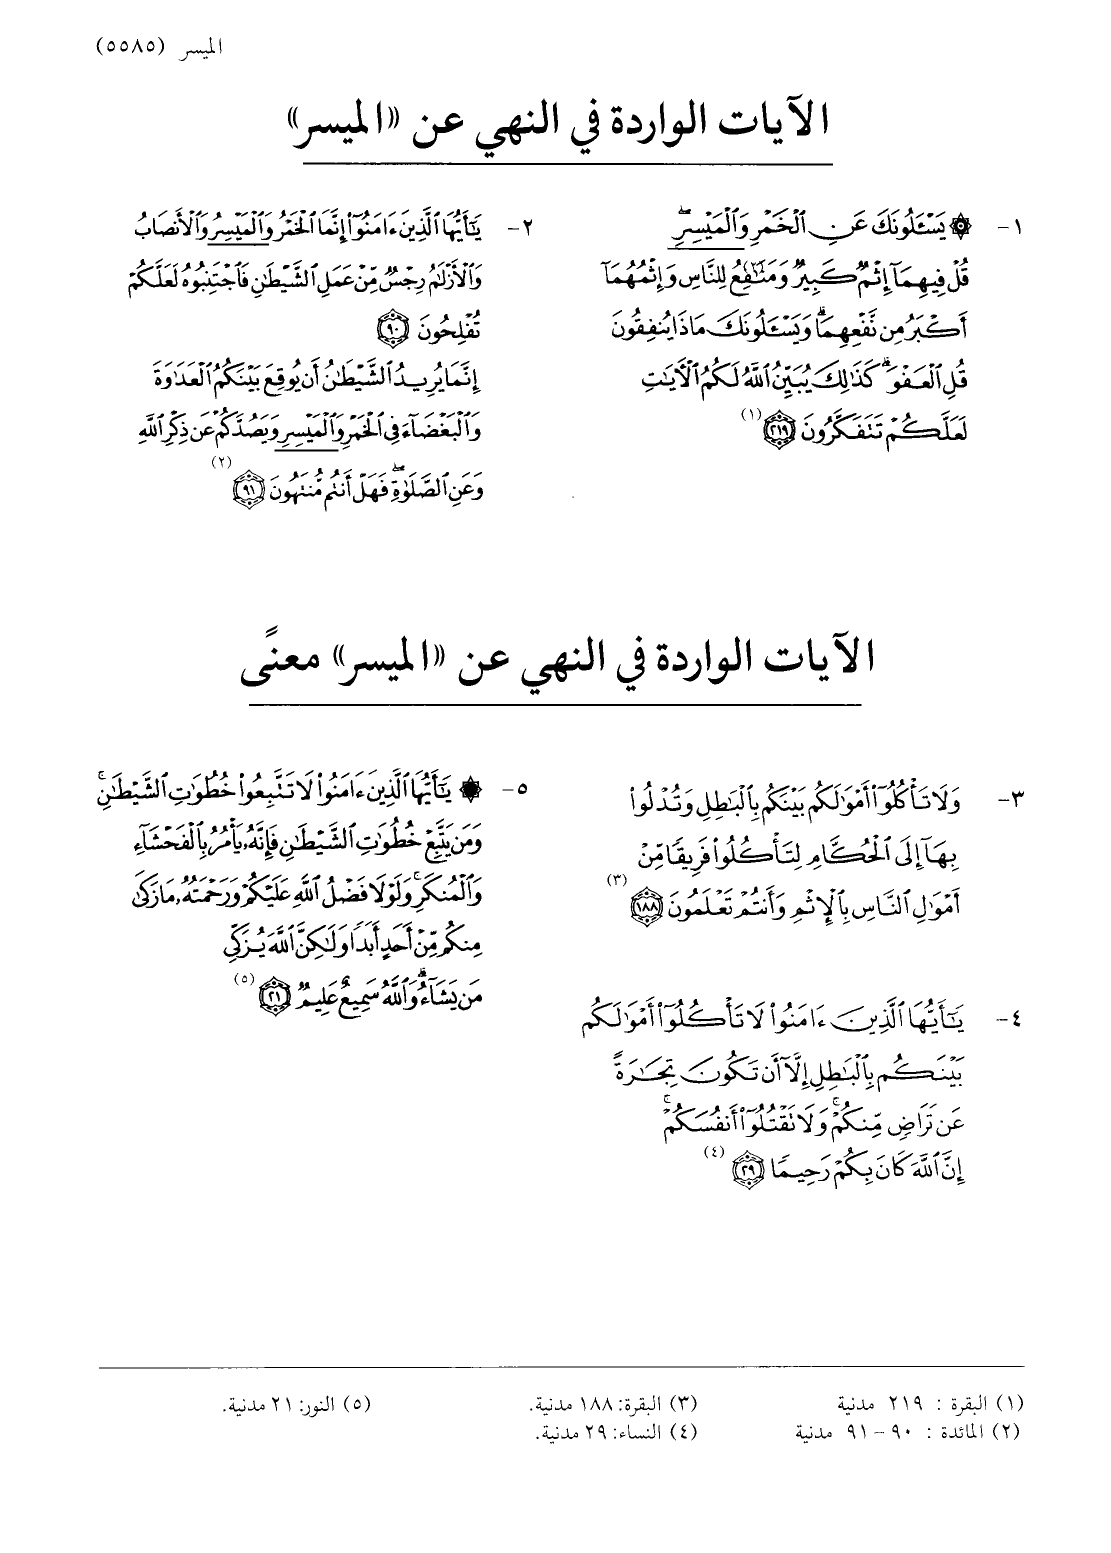 الميسر (٥٥٨٥)
الآيات الواردة في النهي عن «الميسر»
١- ۞ يَسْـَٔلُونَكَ عَنِ ٱلْخَمْرِ وَٱلْمَيْسِرِ ۖ
قُلْ فِيهِمَآ إِثْمٌ كَبِيرٌ وَمَنَـٰفِعُ لِلنَّاسِ وَإِثْمُهُمَآ
أَكْبَرُ مِن نَّفْعِهِمَا ۗ وَيَسْـَٔلُونَكَ مَاذَا يُنفِقُونَ
قُلِ ٱلْعَفْوَ ۗ كَذَٰلِكَ يُبَيِّنُ ٱللَّهُ لَكُمُ ٱلْـَٔايَـٰتِ
لَعَلَّكُمْ تَتَفَكَّرُونَ ٢١٩ (١)
٢- يَـٰٓأَيُّهَا ٱلَّذِينَ ءَامَنُوٓا۟ إِنَّمَا ٱلْخَمْرُ وَٱلْمَيْسِرُ وَٱلْأَنصَابُ
وَٱلْأَزْلَـٰمُ رِجْسٌ مِّنْ عَمَلِ ٱلشَّيْطَـٰنِ فَٱجْتَنِبُوهُ لَعَلَّكُمْ
تُفْلِحُونَ ٩٠
إِنَّمَا يُرِيدُ ٱلشَّيْطَـٰنُ أَن يُوقِعَ بَيْنَكُمُ ٱلْعَدَٰوَةَ
وَٱلْبَغْضَآءَ فِى ٱلْخَمْرِ وَٱلْمَيْسِرِ وَيَصُدَّكُمْ عَن ذِكْرِ ٱللَّهِ
وَعَنِ ٱلصَّلَوٰةِ ۖ فَهَلْ أَنتُم مُّنتَهُونَ ٩١ (٢)
الآيات الواردة في النهي عن «الميسر» معنًى
٣- وَلَا تَأْكُلُوٓا۟ أَمْوَٰلَكُم بَيْنَكُم بِٱلْبَـٰطِلِ وَتُدْلُوا۟
بِهَآ إِلَى ٱلْحُكَّامِ لِتَأْكُلُوا۟ فَرِيقًا مِّنْ
أَمْوَٰلِ ٱلنَّاسِ بِٱلْإِثْمِ وَأَنتُمْ تَعْلَمُونَ ١٨٨ (٣)
٤- يَـٰٓأَيُّهَا ٱلَّذِينَ ءَامَنُوا۟ لَا تَأْكُلُوٓا۟ أَمْوَٰلَكُم
بَيْنَكُم بِٱلْبَـٰطِلِ إِلَّآ أَن تَكُونَ تِجَـٰرَةً
عَن تَرَاضٍ مِّنكُمْ ۚ وَلَا تَقْتُلُوٓا۟ أَنفُسَكُمْ ۚ
إِنَّ ٱللَّهَ كَانَ بِكُمْ رَحِيمًا ٢٩ (٤)
٥- ۞ يَـٰٓأَيُّهَا ٱلَّذِينَ ءَامَنُوا۟ لَا تَتَّبِعُوا۟ خُطُوَٰتِ ٱلشَّيْطَـٰنِ ۚ
وَمَن يَتَّبِعْ خُطُوَٰتِ ٱلشَّيْطَـٰنِ فَإِنَّهُۥ يَأْمُرُ بِٱلْفَحْشَآءِ
وَٱلْمُنكَرِ ۚ وَلَوْلَا فَضْلُ ٱللَّهِ عَلَيْكُمْ وَرَحْمَتُهُۥ مَا زَكَىٰ
مِنكُم مِّنْ أَحَدٍ أَبَدًا وَلَـٰكِنَّ ٱللَّهَ يُزَكِّى
مَن يَشَآءُ ۗ وَٱللَّهُ سَمِيعٌ عَلِيمٌ ٢١ (٥)
(١) البقرة : ٢١٩ مدنية
(٢) المائدة : ٩٠ - ٩١ مدنية
(٣) البقرة: ١٨٨ مدنية.
(٤) النساء: ٢٩ مدنية.
(٥) النور: ٢١ مدنية.